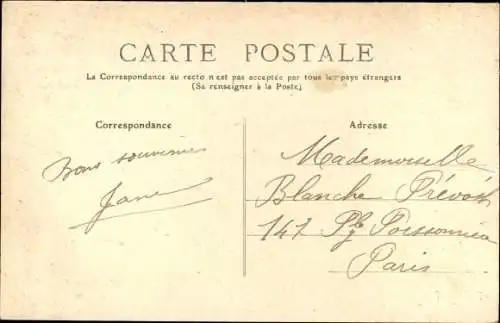 CARTE POSTALE
La Correspondance au recto n'est pas acceptée par tous les pays étrangers
(Se renseigner à la Poste)
Correspondance
Adresse
Bons souvenirs
Jane
Mademoiselle
Blanche Prévost
147 Fg Poissonnière
Paris